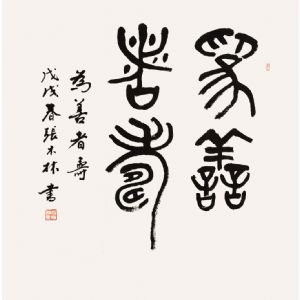 為善
者壽
為善者壽
戊戌春張木林書